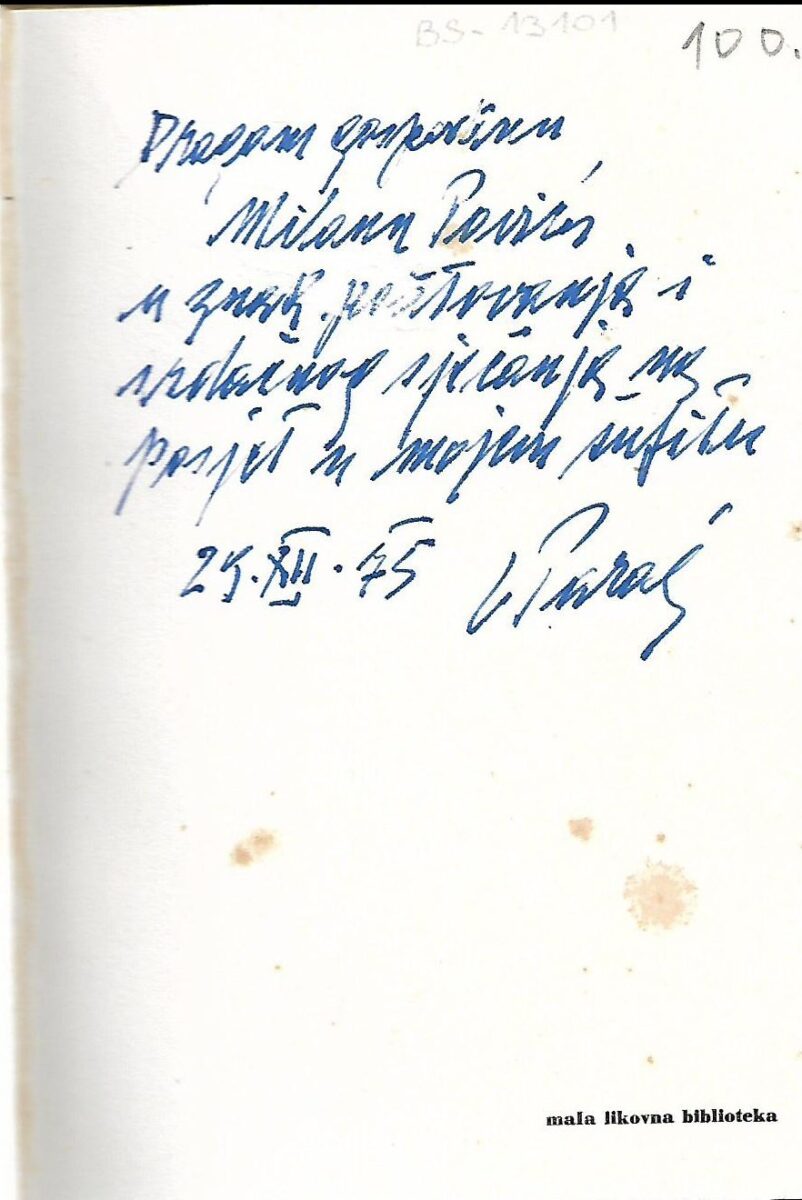 BS-13101
100.
Dragom gospodinu
Milanu
u znak poštovanja i
srdačnog sjećanja na
posjet u mojem sufitu
29.XII.75 V Parać
mala likovna biblioteka